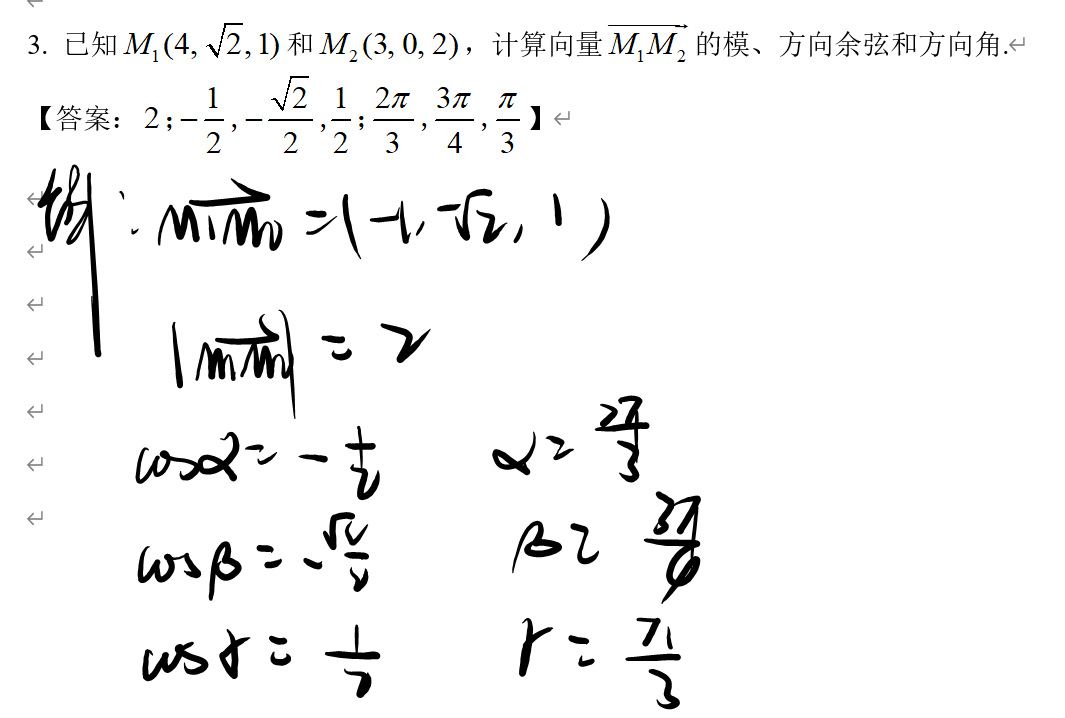 3. 已知 M₁(4, √2, 1) 和 M₂(3, 0, 2)，计算向量 $\overrightarrow{M_1M_2}$ 的模、方向余弦和方向角.
【答案：2; -1/2, -√2/2, 1/2; 2π/3, 3π/4, π/3】
解：$\overrightarrow{M_1M_2}$ = (-1, -√2, 1)
|$\overrightarrow{M_1M_2}$| = 2
cosα = -1/2 α = 2π/3
cosβ = -√2/2 β = 3π/4
cosγ = 1/2 γ = π/3